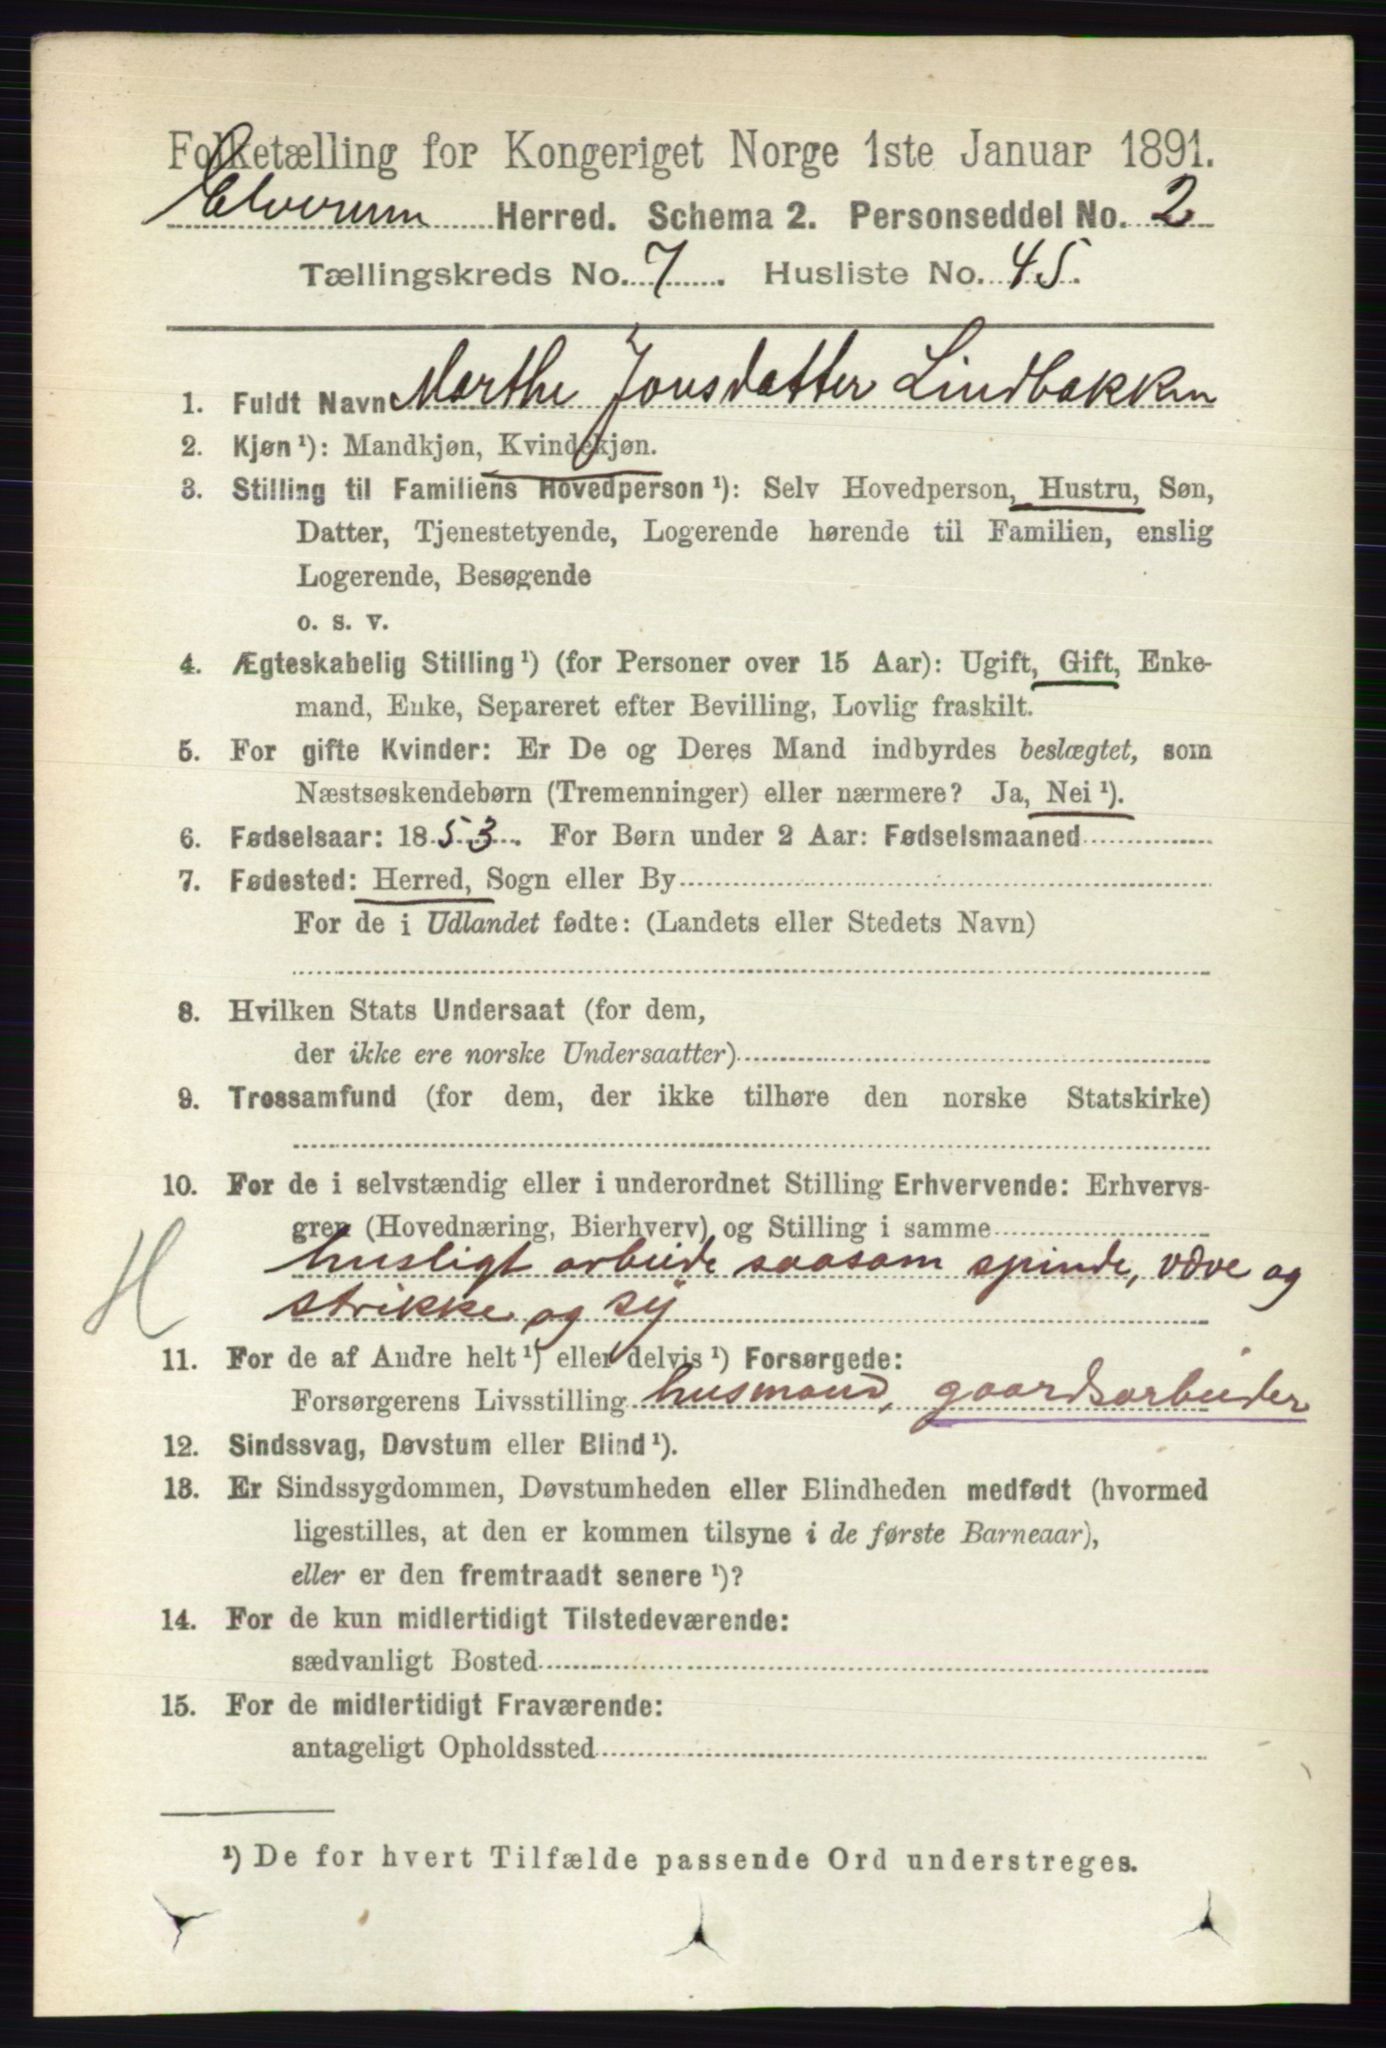 Folketælling for Kongeriget Norge 1ste Januar 1891.
Elverum Herred. Schema 2. Personseddel No. 2
Tællingskreds No. 7. Husliste No. 45.
1. Fuldt Navn Marthe Jonsdatter Lindbakken
2. Kjøn¹): Mandkjøn, Kvindekjøn.
3. Stilling til Familiens Hovedperson¹): Selv Hovedperson, Hustru, Søn,
Datter, Tjenestetyende, Logerende hørende til Familien, enslig
Logerende, Besøgende
o. s. v.
4. Ægteskabelig Stilling¹) (for Personer over 15 Aar): Ugift, Gift, Enke-
mand, Enke, Separeret efter Bevilling, Lovlig fraskilt.
5. For gifte Kvinder: Er De og Deres Mand indbyrdes beslægtet, som
Næstsøskendebørn (Tremenninger) eller nærmere? Ja, Nei¹).
6. Fødselsaar: 1853. For Børn under 2 Aar: Fødselsmaaned
7. Fødested: Herred, Sogn eller By
For de i Udlandet fødte: (Landets eller Stedets Navn)
8. Hvilken Stats Undersaat (for dem,
der ikke ere norske Undersaatter)
9. Trossamfund (for dem, der ikke tilhøre den norske Statskirke)
10. For de i selvstændig eller i underordnet Stilling Erhvervende: Erhvervs-
gren (Hovednæring, Bierhverv) og Stilling i samme
husligt arbeide saasom spinde, væve og
H strikke og sy
11. For de af Andre helt¹) eller delvis¹) Forsørgede:
Forsørgerens Livsstilling husmand, gaardsarbeider
12. Sindssvag, Døvstum eller Blind¹).
13. Er Sindssygdommen, Døvstumheden eller Blindheden medfødt (hvormed
ligestilles, at den er kommen tilsyne i de første Barneaar),
eller er den fremtraadt senere¹)?
14. For de kun midlertidigt Tilstedeværende:
sædvanligt Bosted
15. For de midlertidigt Fraværende:
antageligt Opholdssted
¹) De for hvert Tilfælde passende Ord understreges.